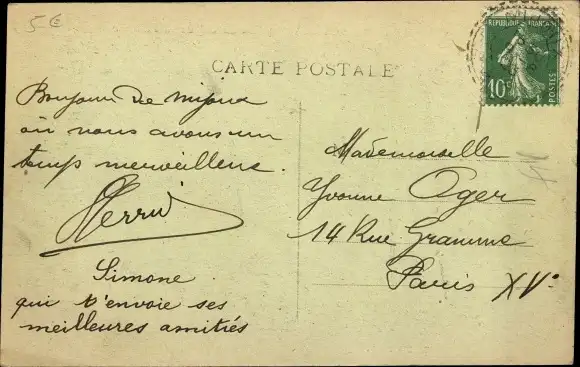 5€
CARTE POSTALE
REPUBLIQUE FRANÇAISE
10c
POSTES
Bonjour de Mijoux
où nous avons un
temps merveilleux.
Simone
qui t'envoie ses
meilleures amitiés
Mademoiselle
Yvonne Oger
14 Rue Gramme
Paris XVe